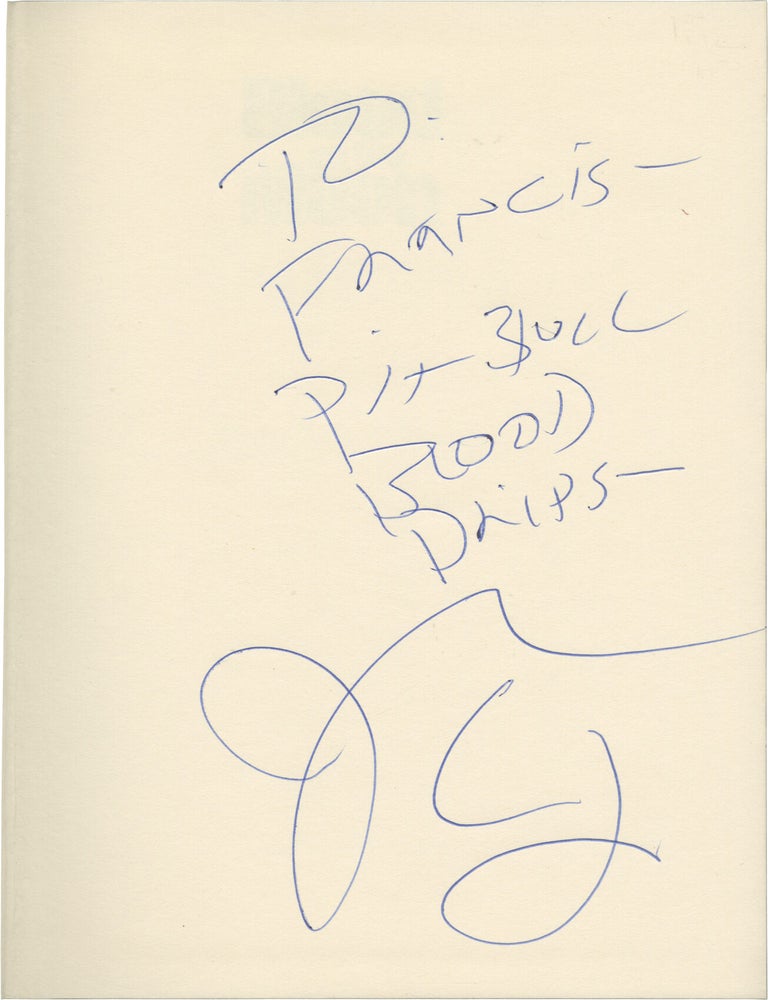 To:
Francis—
Pit Bull
Blood
Drips—